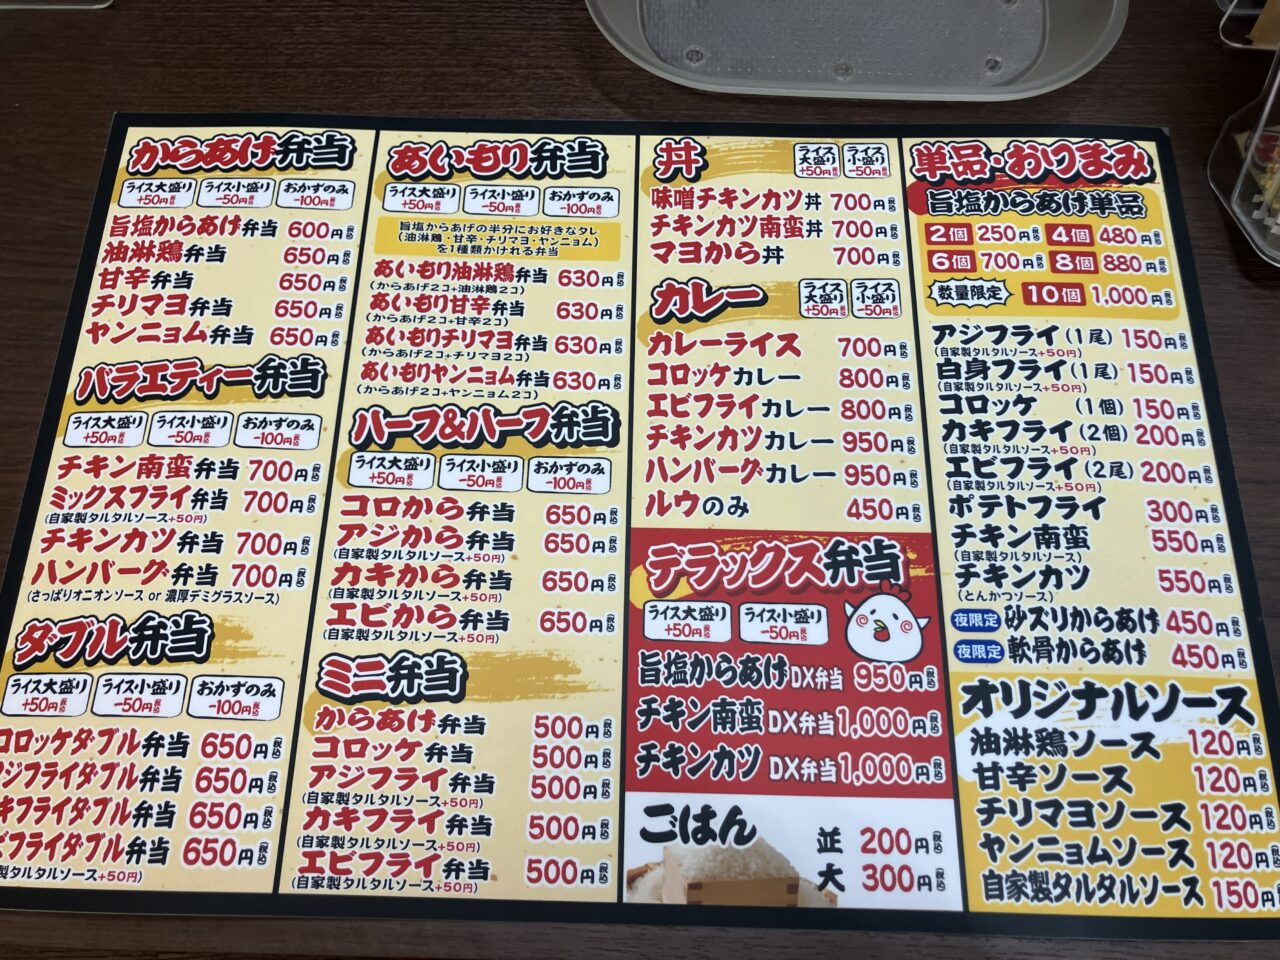 からあげ弁当
ライス大盛り ライス小盛り おかずのみ
+50円税込 -50円税込 -100円税込
旨塩からあげ弁当 600円(税込)
油淋鶏弁当 650円(税込)
甘辛弁当 650円(税込)
チリマヨ弁当 650円(税込)
ヤンニョム弁当 650円(税込)
バラエティー弁当
ライス大盛り ライス小盛り おかずのみ
+50円税込 -50円税込 -100円税込
チキン南蛮弁当 700円(税込)
ミックスフライ弁当 700円(税込)
(自家製タルタルソース+50円)
チキンカツ弁当 700円(税込)
ハンバーグ弁当 700円(税込)
(さっぱりオニオンソース or 濃厚デミグラスソース)
ダブル弁当
ライス大盛り ライス小盛り おかずのみ
+50円税込 -50円税込 -100円税込
コロッケダブル弁当 650円(税込)
ジフライダブル弁当 650円(税込)
キフライダブル弁当 650円(税込)
ビフライダブル弁当 650円(税込)
製タルタルソース+50円)
あいもり弁当
ライス大盛り ライス小盛り おかずのみ
+50円税込 -50円税込 -100円税込
旨塩からあげの半分にお好きなタレ
(油淋鶏・甘辛・チリマヨ・ヤンニョム)
を1種類かけれる弁当
あいもり油淋鶏弁当 630円(税込)
(からあげ2コ+油淋鶏2コ)
あいもり甘辛弁当 630円(税込)
(からあげ2コ+甘辛2コ)
あいもりチリマヨ弁当 630円(税込)
(からあげ2コ+チリマヨ2コ)
あいもりヤンニョム弁当 630円(税込)
(からあげ2コ+ヤンニョム2コ)
ハーフ&ハーフ弁当
ライス大盛り ライス小盛り おかずのみ
+50円税込 -50円税込 -100円税込
コロから弁当 650円(税込)
アジから弁当 650円(税込)
(自家製タルタルソース+50円)
カキから弁当 650円(税込)
(自家製タルタルソース+50円)
エビから弁当 650円(税込)
(自家製タルタルソース+50円)
ミニ弁当
からあげ弁当 500円(税込)
コロッケ弁当 500円(税込)
アジフライ弁当 500円(税込)
(自家製タルタルソース+50円)
カキフライ弁当 500円(税込)
(自家製タルタルソース+50円)
エビフライ弁当 500円(税込)
(自家製タルタルソース+50円)
丼
ライス大盛り ライス小盛り
+50円税込 -50円税込
味噌チキンカツ丼 700円(税込)
チキンカツ南蛮丼 700円(税込)
マヨから丼 700円(税込)
カレー
ライス大盛り ライス小盛り
+50円税込 -50円税込
カレーライス 700円(税込)
コロッケカレー 800円(税込)
エビフライカレー 800円(税込)
チキンカツカレー 950円(税込)
ハンバーグカレー 950円(税込)
ルウのみ 450円(税込)
デラックス弁当
ライス大盛り ライス小盛り
+50円税込 -50円税込
旨塩からあげDX弁当 950円(税込)
チキン南蛮DX弁当 1,000円(税込)
チキンカツDX弁当 1,000円(税込)
ごはん
並 200円(税込)
大 300円(税込)
単品・おつまみ
旨塩からあげ単品
2個 250円(税込) 4個 480円(税込)
6個 700円(税込) 8個 880円(税込)
数量限定 10個 1,000円(税込)
アジフライ(1尾) 150円(税込)
(自家製タルタルソース+50円)
白身フライ(1尾) 150円(税込)
(自家製タルタルソース+50円)
コロッケ (1個) 150円(税込)
カキフライ(2個) 200円(税込)
(自家製タルタルソース+50円)
エビフライ(2尾) 200円(税込)
(自家製タルタルソース+50円)
ポテトフライ 300円(税込)
チキン南蛮 550円(税込)
(自家製タルタルソース)
チキンカツ 550円(税込)
(とんかつソース)
夜限定 砂ズリからあげ 450円(税込)
夜限定 軟骨からあげ 450円(税込)
オリジナルソース
油淋鶏ソース 120円(税込)
甘辛ソース 120円(税込)
チリマヨソース 120円(税込)
ヤンニョムソース 120円(税込)
自家製タルタルソース 150円